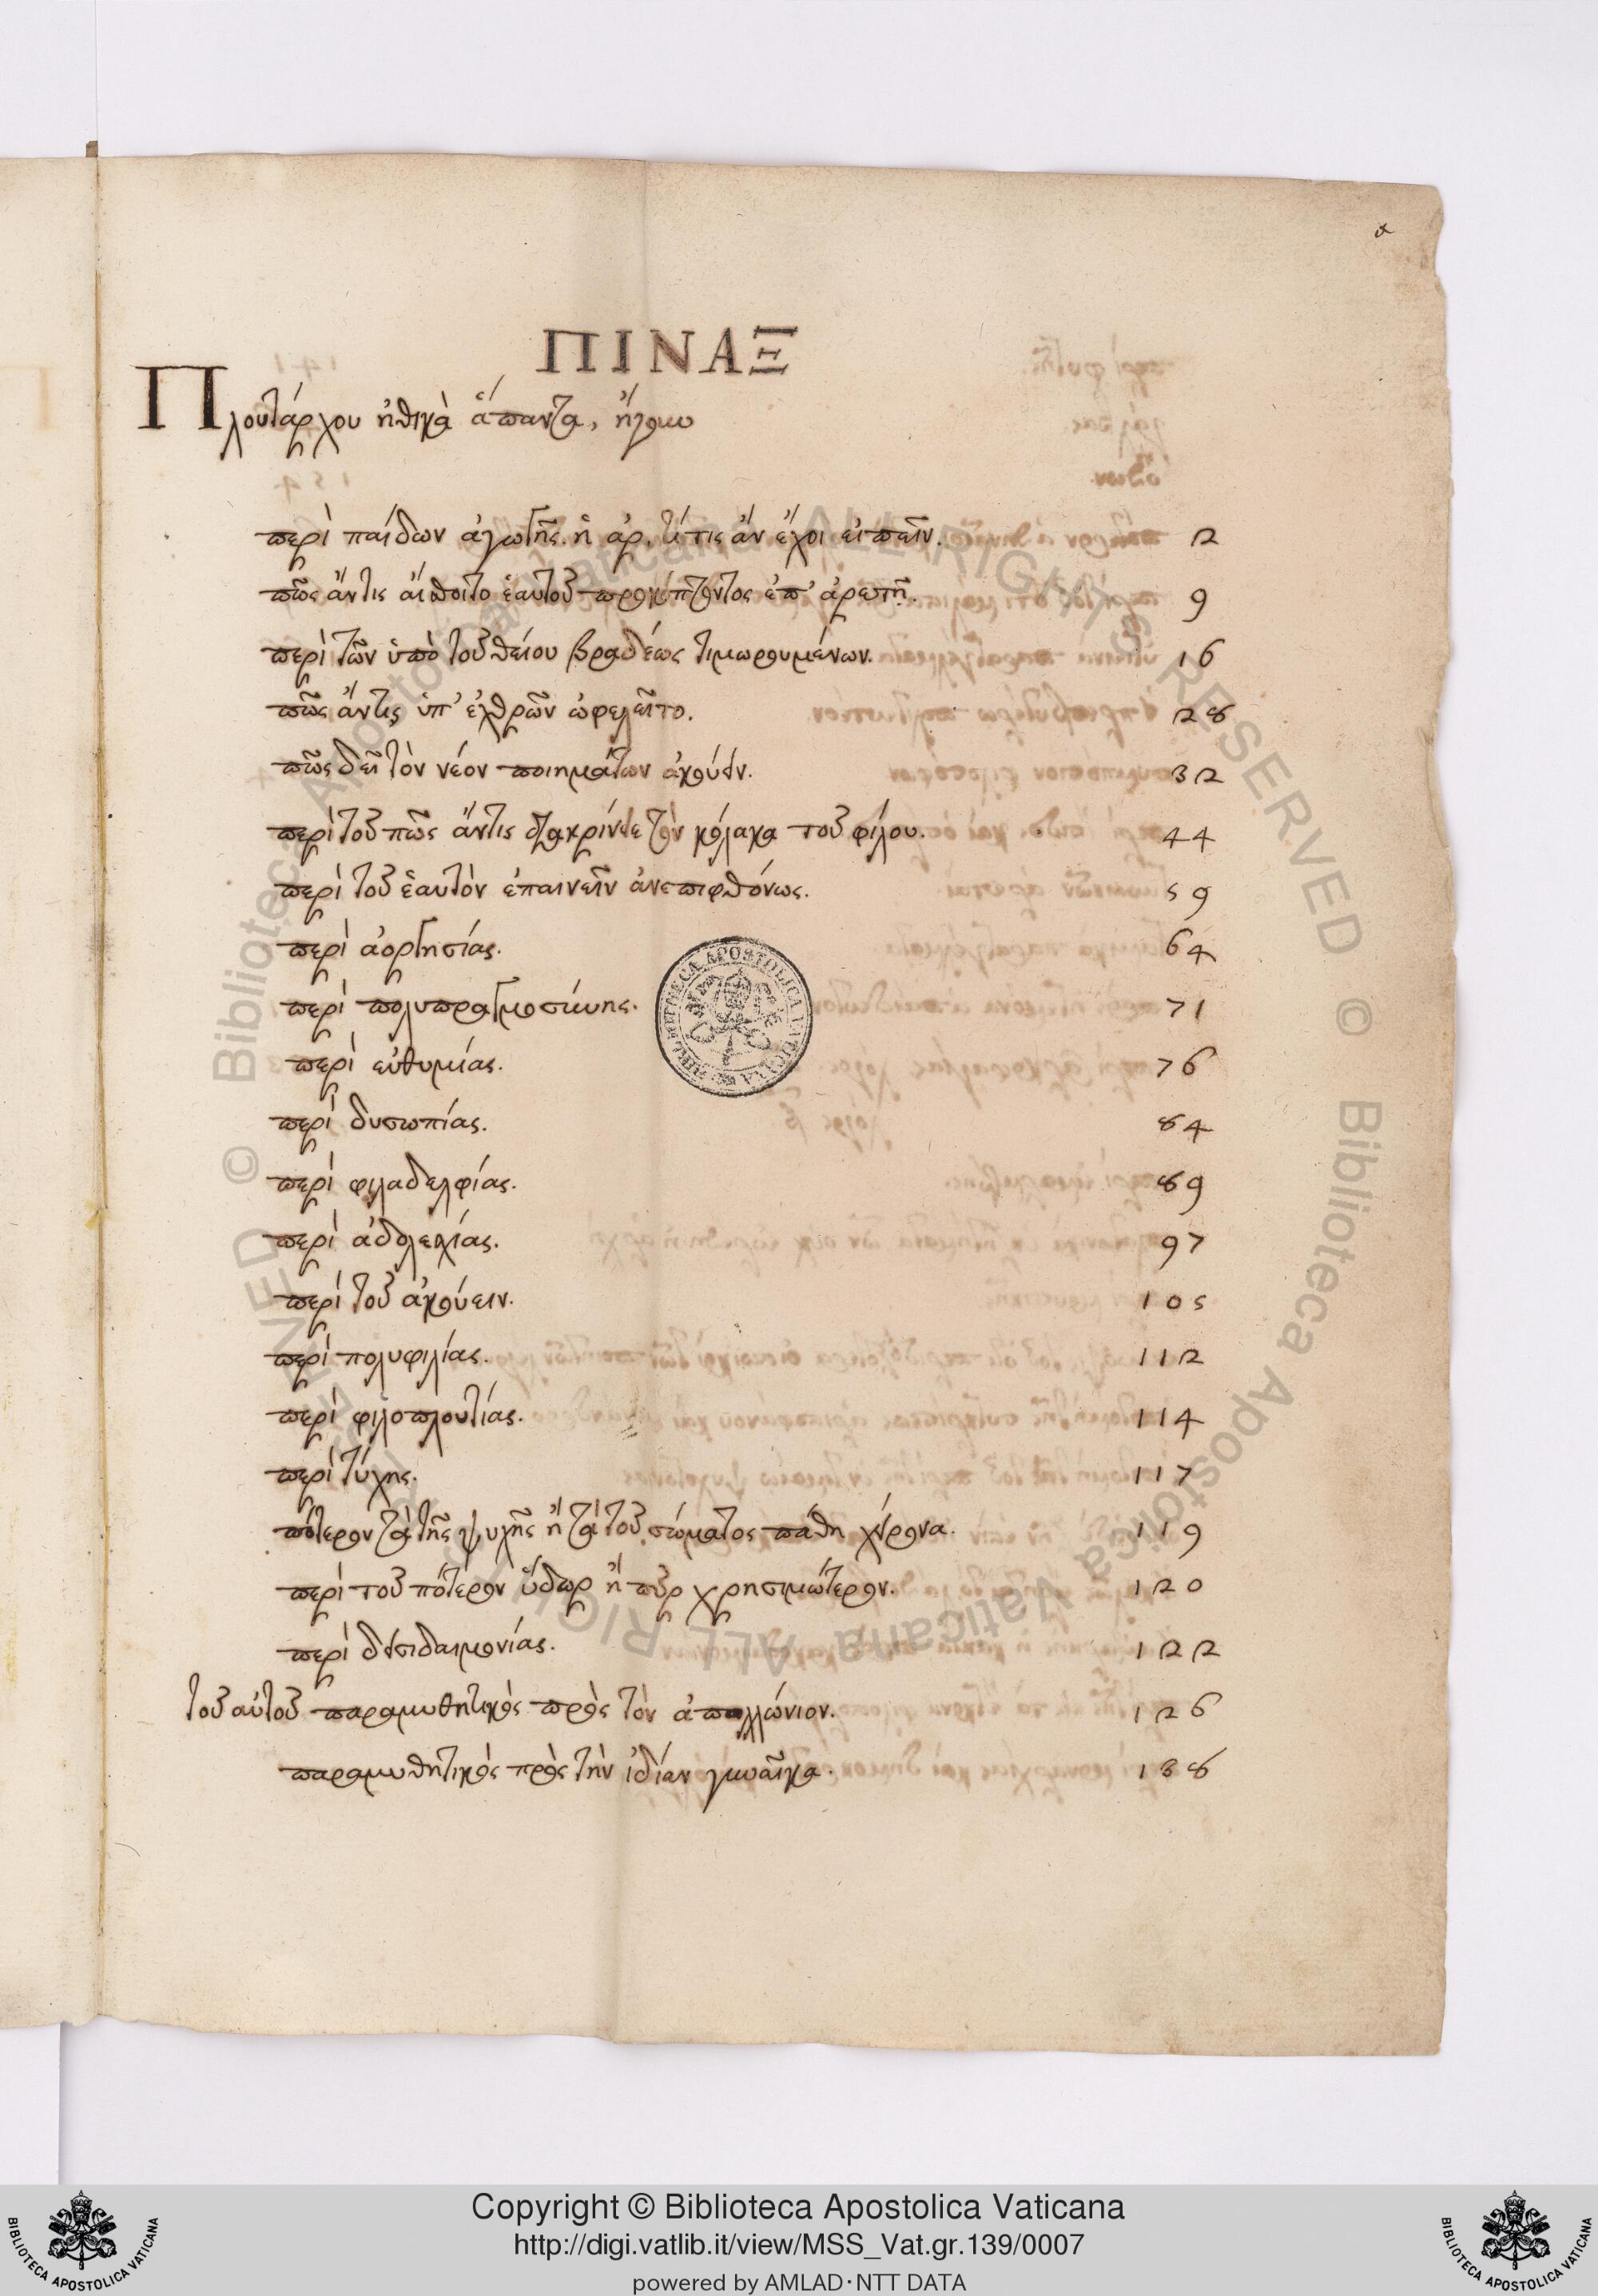 ΠΙΝΑΞ
Πλουτάρχου ἠθικὰ ἅπαντα,
περὶ παίδων ἀγωγῆς. ἡ ἀρ. τί τις ἂν ἔχοι εἰπεῖν. 2
πῶς ἄν τις αἴσθοιτο ἑαυτοῦ προκόπτοντος ἐπ' ἀρετῇ. 9
περὶ τῶν ὑπὸ τοῦ θείου βραδέως τιμωρουμένων. 16
πῶς ἄν τις ὑπ' ἐχθρῶν ὠφελεῖτο. 28
πῶς δεῖ τὸν νέον ποιημάτων ἀκούειν. 32
περὶ τοῦ πῶς ἄν τις διακρίνειε τὸν κόλακα τοῦ φίλου. 44
περὶ τοῦ ἑαυτὸν ἐπαινεῖν ἀνεπιφθόνως. 59
περὶ ἀοργησίας. 64
περὶ πολυπραγμοσύνης. 71
περὶ εὐθυμίας. 76
περὶ δυσωπίας. 84
περὶ φιλαδελφίας. 89
περὶ ἀδολεσχίας. 97
περὶ τοῦ ἀκούειν. 105
περὶ πολυφιλίας. 112
περὶ φιλοπλουτίας. 114
περὶ τύχης. 117
πότερον τὰ τῆς ψυχῆς ἢ τὰ τοῦ σώματος πάθη χείρονα. 119
περὶ τοῦ πότερον ὕδωρ ἢ πῦρ χρησιμώτερον. 120
περὶ δεισιδαιμονίας. 122
τοῦ αὐτοῦ παραμυθητικὸς πρὸς τὸν ἀπολλώνιον. 126
παραμυθητικὸς πρὸς τὴν ἰδίαν γυναῖκα. 138
Copyright © Biblioteca Apostolica Vaticana
http://digi.vatlib.it/view/MSS_Vat.gr.139/0007
powered by AMLAD·NTT DATA
BIBLIOTECA APOSTOLICA VATICANA
BIBLIOTECA APOSTOLICA VATICANA